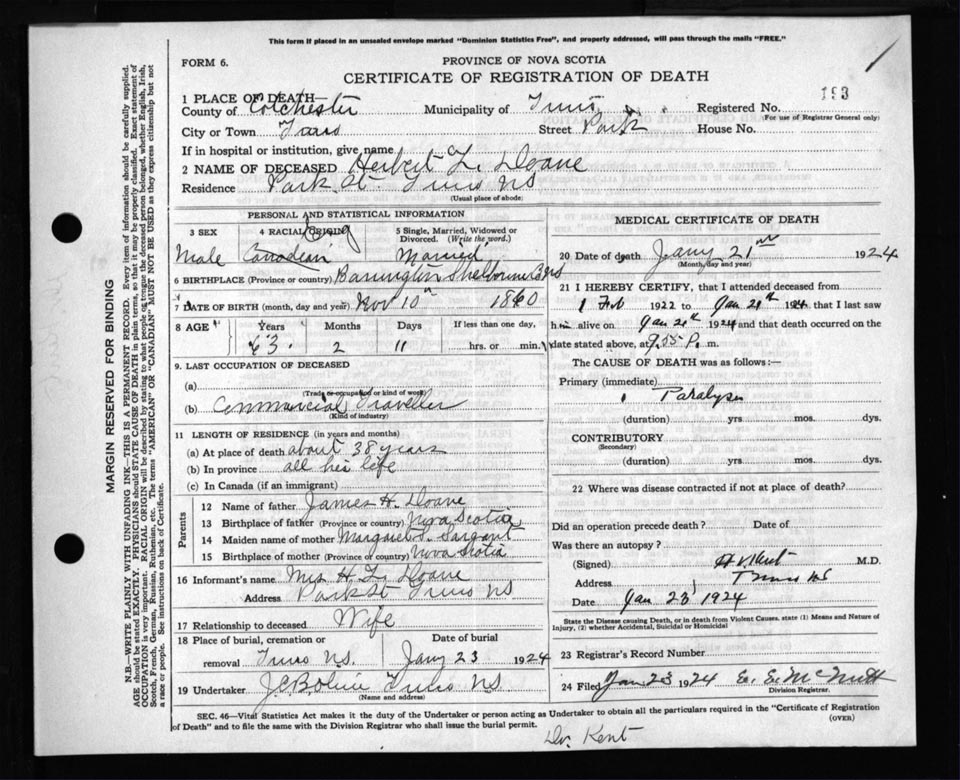 This form if placed in an unsealed envelope marked "Dominion Statistics Free", and properly addressed, will pass through the mails "FREE."
FORM 6.
PROVINCE OF NOVA SCOTIA
CERTIFICATE OF REGISTRATION OF DEATH
193
1 PLACE OF DEATH—
County of Colchester Municipality of Truro Registered No.
(For use of Registrar General only)
City or Town Truro Street Park House No.
If in hospital or institution, give name
2 NAME OF DECEASED Herbert L. Doane
Residence Park St Truro NS
(Usual place of abode)
PERSONAL AND STATISTICAL INFORMATION
3 SEX 4 RACIAL ORIGIN 5 Single, Married, Widowed or Divorced. (Write the word.)
Male Canadian Eng Married
6 BIRTHPLACE (Province or country) Barrington Shelburne Co NS
7 DATE OF BIRTH (month, day and year) Nov 10th 1860
8 AGE Years Months Days If less than one day,
63 2 11 hrs. or min.
9. LAST OCCUPATION OF DECEASED
(a)
(Trade or occupation or kind of work)
(b) Commercial Traveller
(Kind of industry)
11 LENGTH OF RESIDENCE (in years and months)
(a) At place of death about 38 years
(b) In province all his life
(c) In Canada (if an immigrant)
Parents
12 Name of father James H. Doane
13 Birthplace of father (Province or country) Nova Scotia
14 Maiden name of mother Margaret S. Sargent
15 Birthplace of mother (Province or country) Nova Scotia
16 Informant's name Mrs H. L. Doane
Address Park St Truro NS
17 Relationship to deceased Wife
18 Place of burial, cremation or removal Truro NS.
Date of burial Jany 23 1924
19 Undertaker Truro NS
(Name and address)
MEDICAL CERTIFICATE OF DEATH
20 Date of death Jany 21st 1924
(Month, day and year)
21 I HEREBY CERTIFY, that I attended deceased from
1 Feb 1922 to Jan 21st 1924 that I last saw
him alive on Jan 21st 1924 and that death occurred on the
date stated above, at 9.55 P. m.
The CAUSE OF DEATH was as follows:—
Primary (immediate)
Paralysis
(duration) yrs. mos. dys.
CONTRIBUTORY
(Secondary)
(duration) yrs. mos. dys.
22 Where was disease contracted if not at place of death?
Did an operation precede death? Date of
Was there an autopsy?
(Signed) H V Kent M.D.
Address Truro NS
Date Jan 23 1924
State the Disease causing Death, or in death from Violent Causes, state (1) Means and Nature of
Injury, (2) whether Accidental, Suicidal or Homicidal
23 Registrar's Record Number
24 Filed Jan 23 1924 McNutt
Division Registrar.
SEC. 46—Vital Statistics Act makes it the duty of the Undertaker or person acting as Undertaker to obtain all the particulars required in the "Certificate of Registration
of Death" and to file the same with the Division Registrar who shall issue the burial permit.
(OVER)
Dr. Kent
MARGIN RESERVED FOR BINDING
N.B.—WRITE PLAINLY WITH UNFADING INK—THIS IS A PERMANENT RECORD. Every item of information should be carefully supplied.
AGE should be stated EXACTLY. PHYSICIANS should STATE CAUSE OF DEATH in plain terms, so that it may be properly classified. Exact statement of
OCCUPATION is very important. RACIAL ORIGIN will be described by stating to what people or tongue the deceased person belonged, whether English, Irish,
Scotch, French, German, Russian, Ruthenian, etc. The terms "AMERICAN" OR "CANADIAN" MUST NOT BE USED as they express citizenship but not
a race or people. See instructions on back of Certificate.